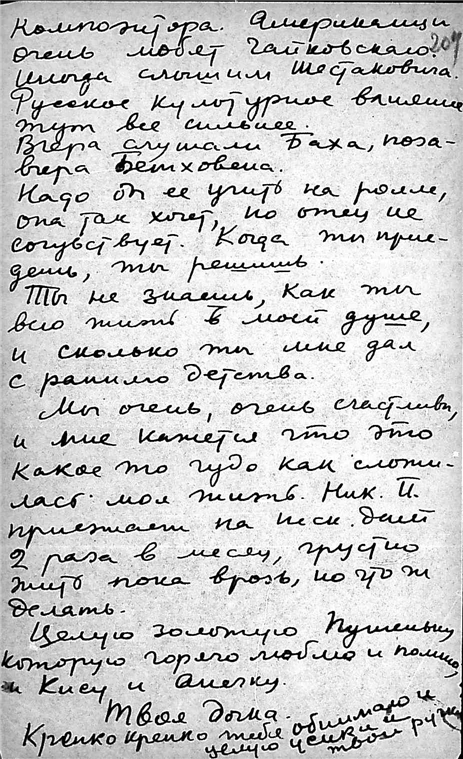 композитора. Американцы
очень любят Чайковскаго. 207
Иногда слышим Шестаковича.
Русское культурное влияние
тут все сильнее.
Вчера слушали Баха, поза-
вчера Бетховена.
Надо бы ее учить на рояле,
она так хочет, но отец не
сочувствует. Когда ты прие-
дешь, ты решишь.
Ты не знаешь, как ты
всю жизнь в моей душе,
и сколько ты мне дал
с раннего детства.
Мы очень, очень счастливы,
и мне кажется что это
какое то чудо как сложи-
лась моя жизнь. Ник. П.
приезжает на неск. дней
2 раза в месяц, грустно
жить пока врозь, но что ж
делать.
Целую золотую Пушеньку
которую горячо люблю и помню,
и Кису и Анечку.
Твоя дочка.
Крепко крепко тебя обнимаю и
целую усики и
твои ручки